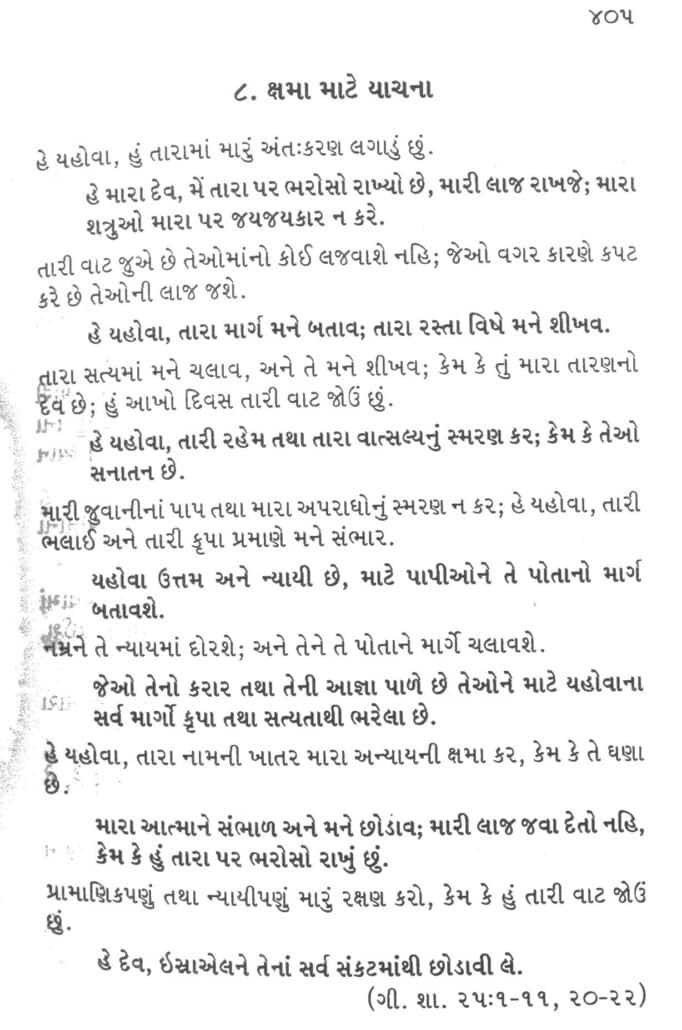 ૪૦૫
૮. ક્ષમા માટે યાચના
હે યહોવા, હું તારામાં મારું અંતઃકરણ લગાડું છું.
હે મારા દેવ, મેં તારા પર ભરોસો રાખ્યો છે, મારી લાજ રાખજે; મારા
શત્રુઓ મારા પર જયજયકાર ન કરે.
તારી વાટ જુએ છે તેઓમાંનો કોઈ લજવાશે નહિ; જેઓ વગર કારણે કપટ
કરે છે તેઓની લાજ જશે.
હે યહોવા, તારા માર્ગ મને બતાવ; તારા રસ્તા વિષે મને શીખવ.
તારા સત્યમાં મને ચલાવ, અને તે મને શીખવ; કેમ કે તું મારા તારણનો
દેવ છે; હું આખો દિવસ તારી વાટ જોઉં છું.
હે યહોવા, તારી રહેમ તથા તારા વાત્સલ્યનું સ્મરણ કર; કેમ કે તેઓ
સનાતન છે.
મારી જુવાનીનાં પાપ તથા મારા અપરાધોનું સ્મરણ ન કર; હે યહોવા, તારી
ભલાઈ અને તારી કૃપા પ્રમાણે મને સંભાર.
યહોવા ઉત્તમ અને ન્યાયી છે, માટે પાપીઓને તે પોતાનો માર્ગ
બતાવશે.
નમ્રને તે ન્યાયમાં દોરશે; અને તેને તે પોતાને માર્ગે ચલાવશે.
જેઓ તેનો કરાર તથા તેની આજ્ઞા પાળે છે તેઓને માટે યહોવાના
સર્વ માર્ગો કૃપા તથા સત્યતાથી ભરેલા છે.
હે યહોવા, તારા નામની ખાતર મારા અન્યાયની ક્ષમા કર, કેમ કે તે ઘણા
છે.
મારા આત્માને સંભાળ અને મને છોડાવ; મારી લાજ જવા દેતો નહિ,
કેમ કે હું તારા પર ભરોસો રાખું છું.
પ્રામાણિકપણું તથા ન્યાયીપણું મારું રક્ષણ કરો, કેમ કે હું તારી વાટ જોઉં
છું.
હે દેવ, ઇસ્રાએલને તેનાં સર્વ સંકટમાંથી છોડાવી લે.
(ગી. શા. ૨૫:૧-૧૧, ૨૦-૨૨)